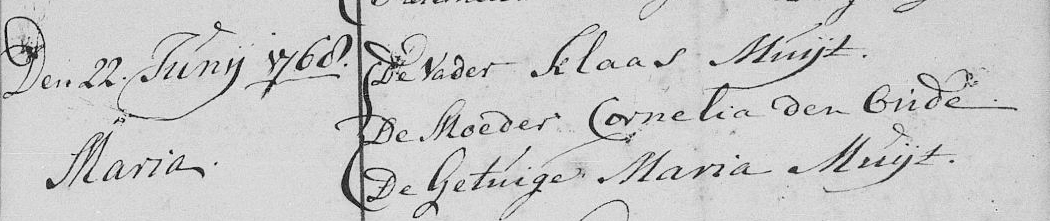 Den 22. Junij 1768.
Maria.
De Vader Klaas Muijt.
De Moeder Cornelia den Oude.
De Getuige Maria Muijt.